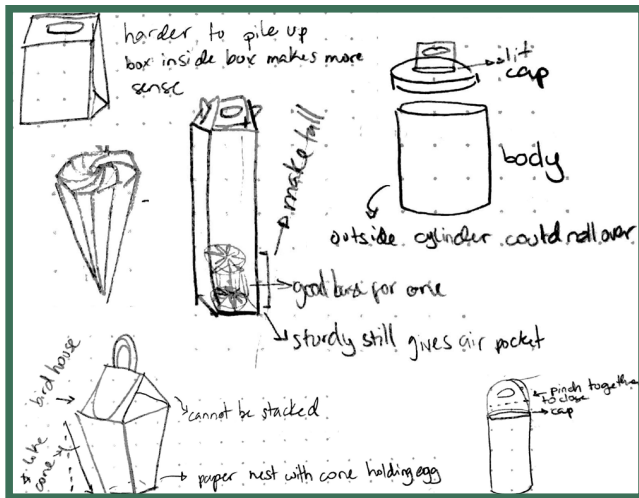 harder to pile up
box inside box makes more
sense
lit
cap
body
outside cylinder could roll over
make tall
good base for one
sturdy still gives air pocket
like bird house
like cone
cannot be stacked
paper nest with cone holding egg
pinch together
to close
cap